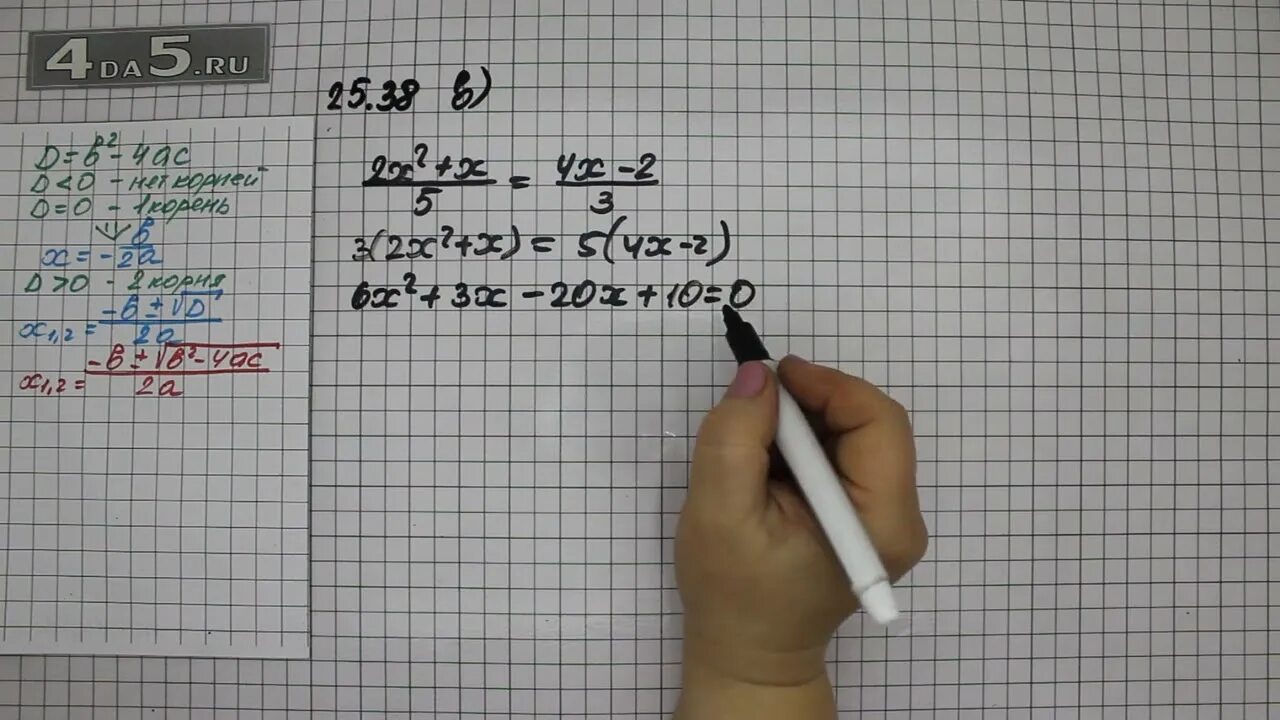 4DA5.RU
25.38 в)
D = в² - 4ac
D < 0 - нет корней
D = 0 - 1 корень
x = - в/2a
D > 0 - 2 корня
x₁,₂ = (-в ± √D)/2a
x₁,₂ = (-в ± √(в² - 4ac))/2a
(2x² + x)/5 = (4x - 2)/3
3(2x² + x) = 5(4x - 2)
6x² + 3x - 20x + 10 = 0